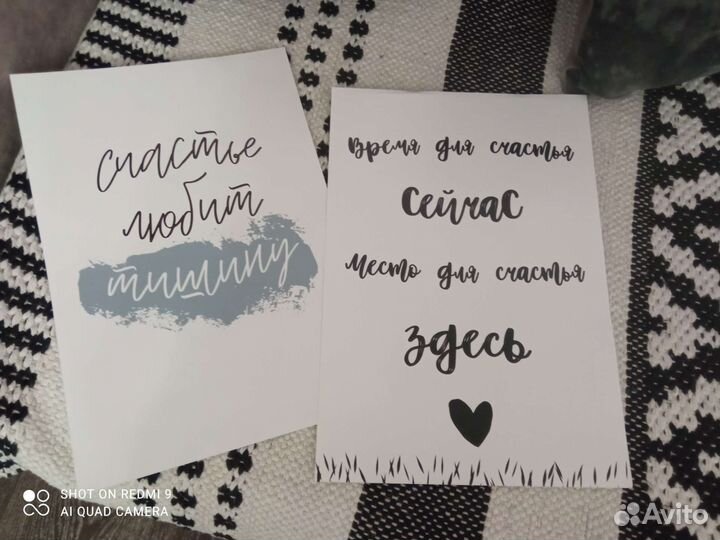 счастье
любит
тишину
Время для счастья
сейчас
Место для счастья
здесь
SHOT ON REDMI 9
AI QUAD CAMERA
Avito